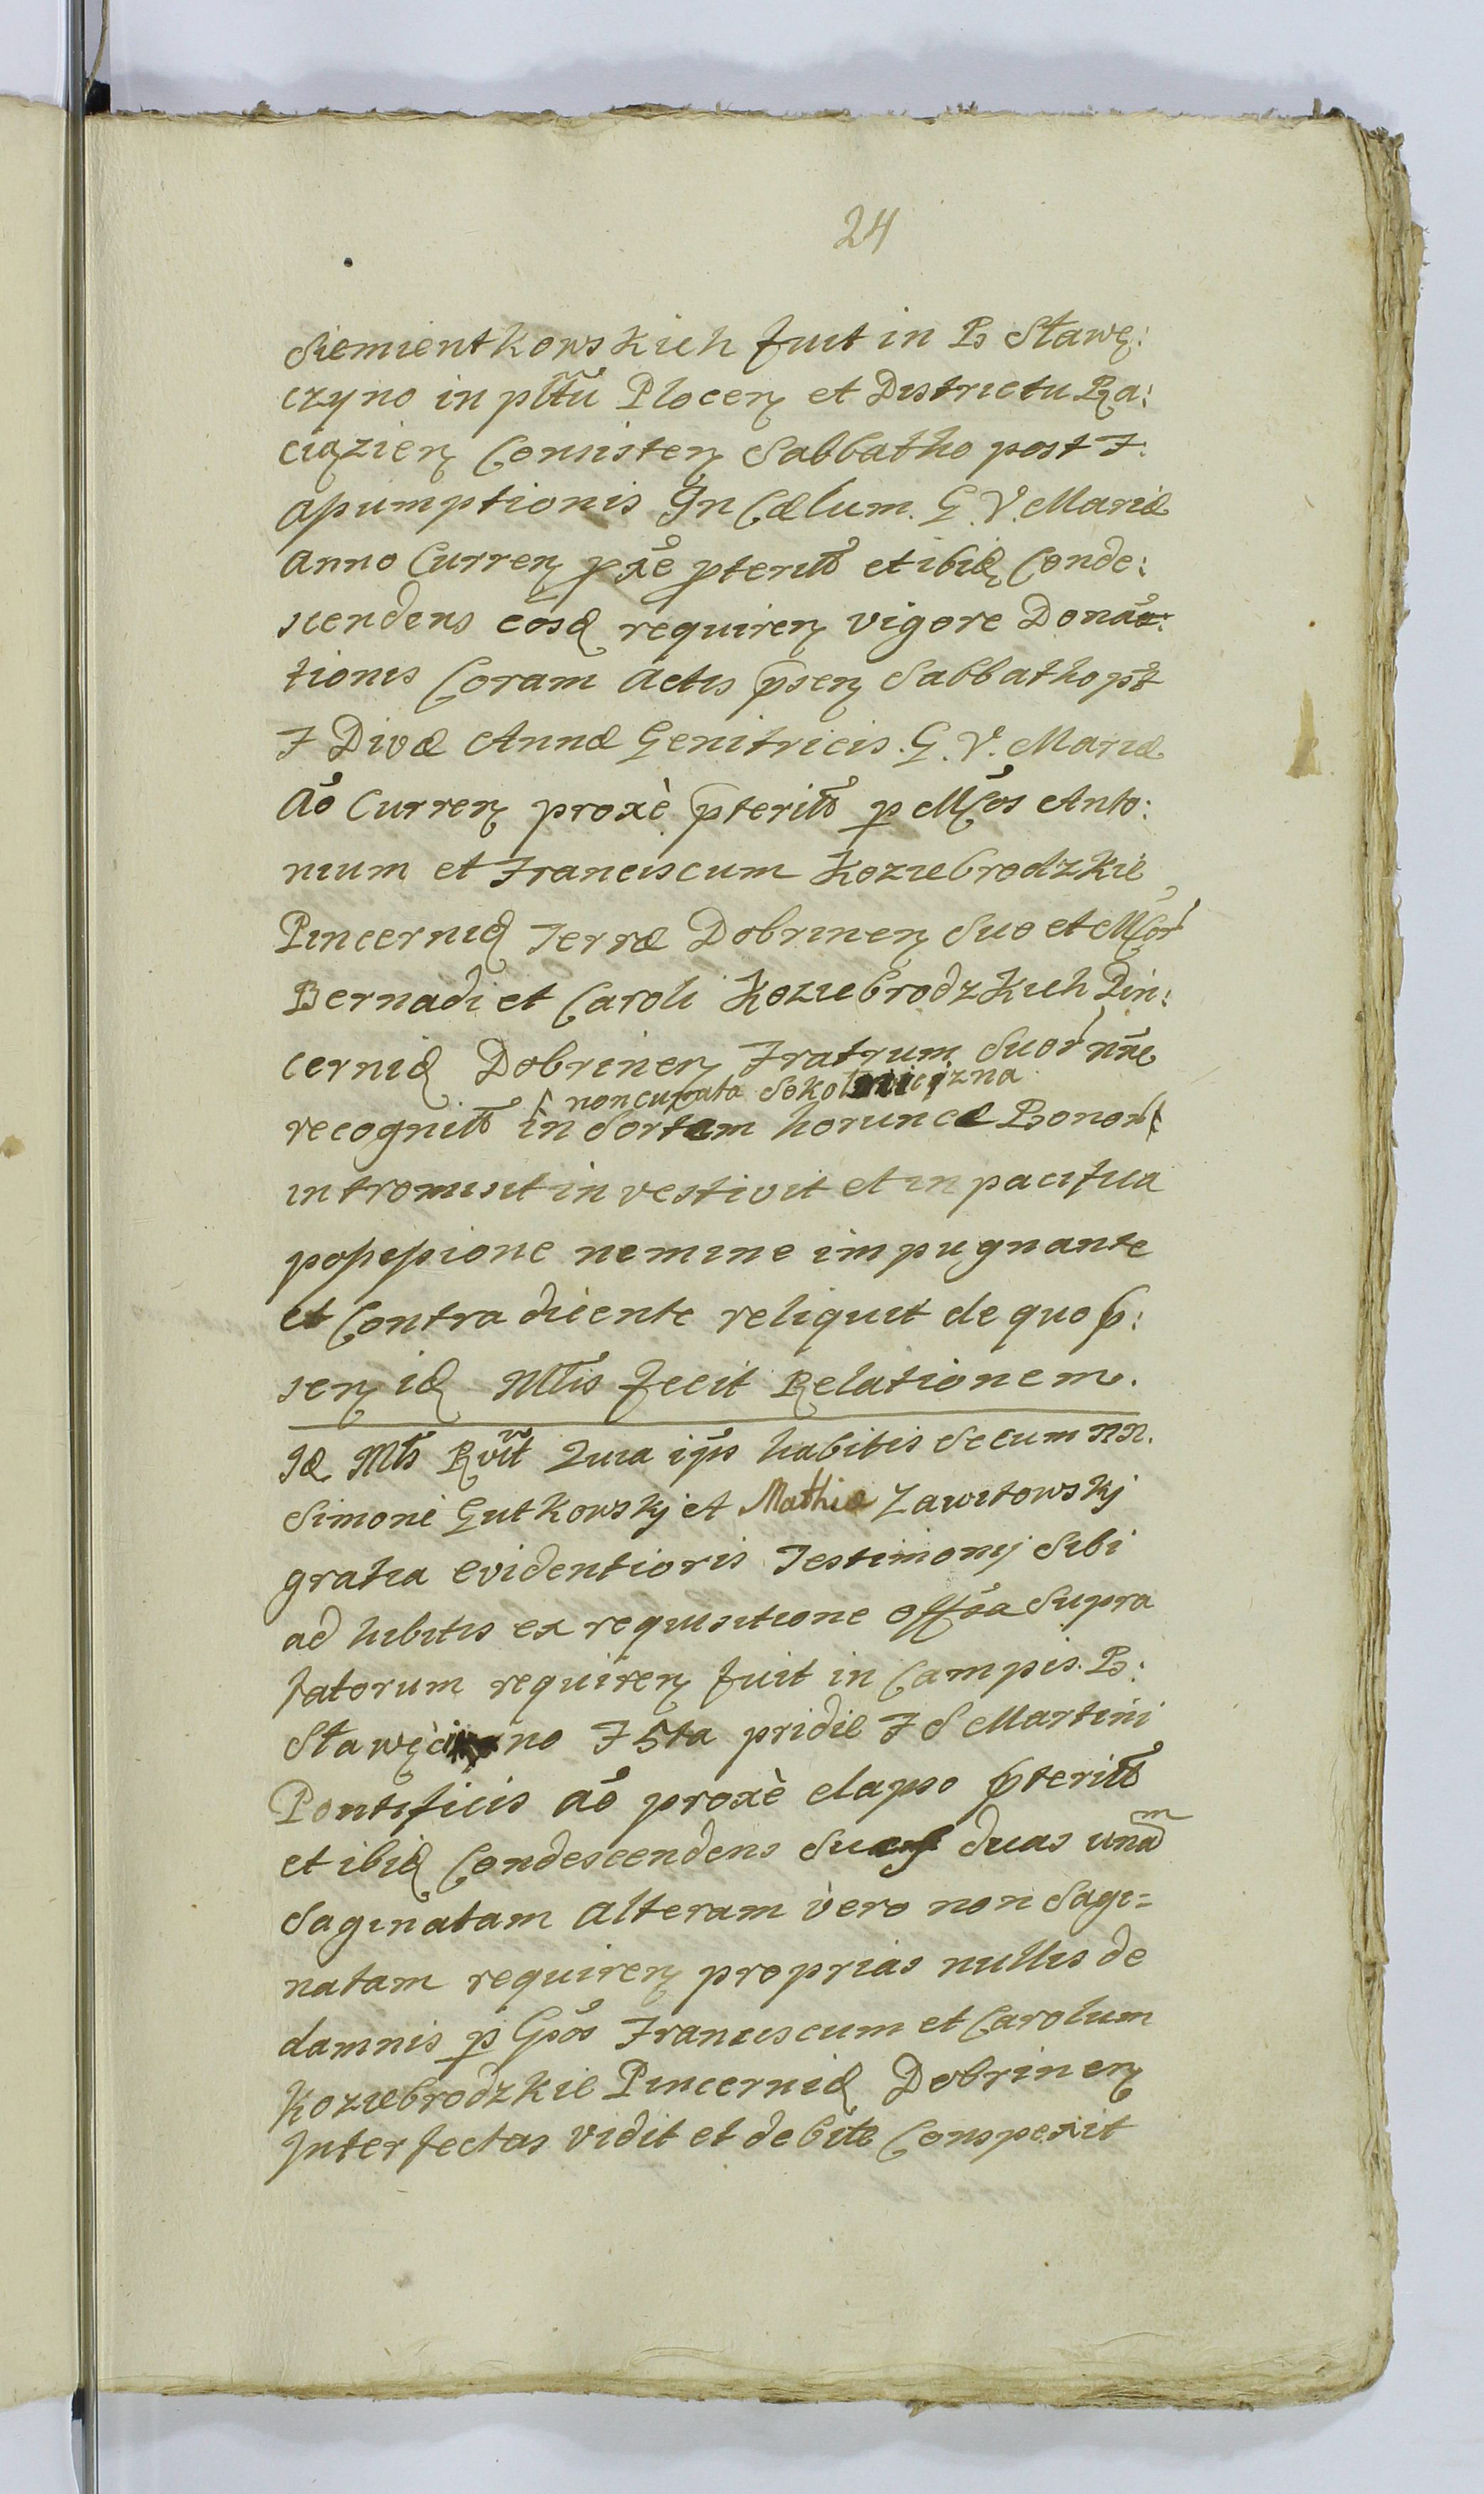 24
Siemientkowskich fuit in B. Stawę:
czyno in pltũ Plocen et Districtu Ra:
ciązien Consisten Sabbatho post F.
assumptionis In Cælum. B. V. Mariæ
Anno Curren pxe pteritto et ibid Conde:
scendens eosd requiren vigore Dona:
tionis Coram Actis psen Sabbatho pt
F Divæ Annæ Genitricis. B. V. Mariæ
Ao Curren proxè pteritto p Mcos Anto:
nium et Franciscum Koziebrodzkie
Pincernid Terræ Dobrinen Suo et Mcor
Bernadi et Caroli Koziebrodzkich Pin:
cernid Dobrinen Fratrum Suor nne
noncupata Sokolniczizna
recognitto in Sortem horunce Bonor
intromisit investivit et in pacifica
possessione nemine impugnante
et Contradicente reliquit de quo p:
sen id Mtis fecit Relationem.
Id Mts Rvit Quia ips habitis Secum NN.
Simone Gutkowskj et Mathia Zawitowskj
gratia evidentioris Testimonij Sibi
ad hibitis ex requisitione offõa Supra
fatorum requiren fuit in Campis. B:
Stawęci no F 5ta pridie F S Martini
Pontificis ao proxè elapso pteritto
et ibid Condescendens Sues duas unam
Saginatam alteram vero non Sagi=
natam requiren proprias nullis de
damnis p Gsos Franciscum et Carolum
Koziebrodzkie Pincernid Dobrinen
Interfectas vidit et debite Conspexit